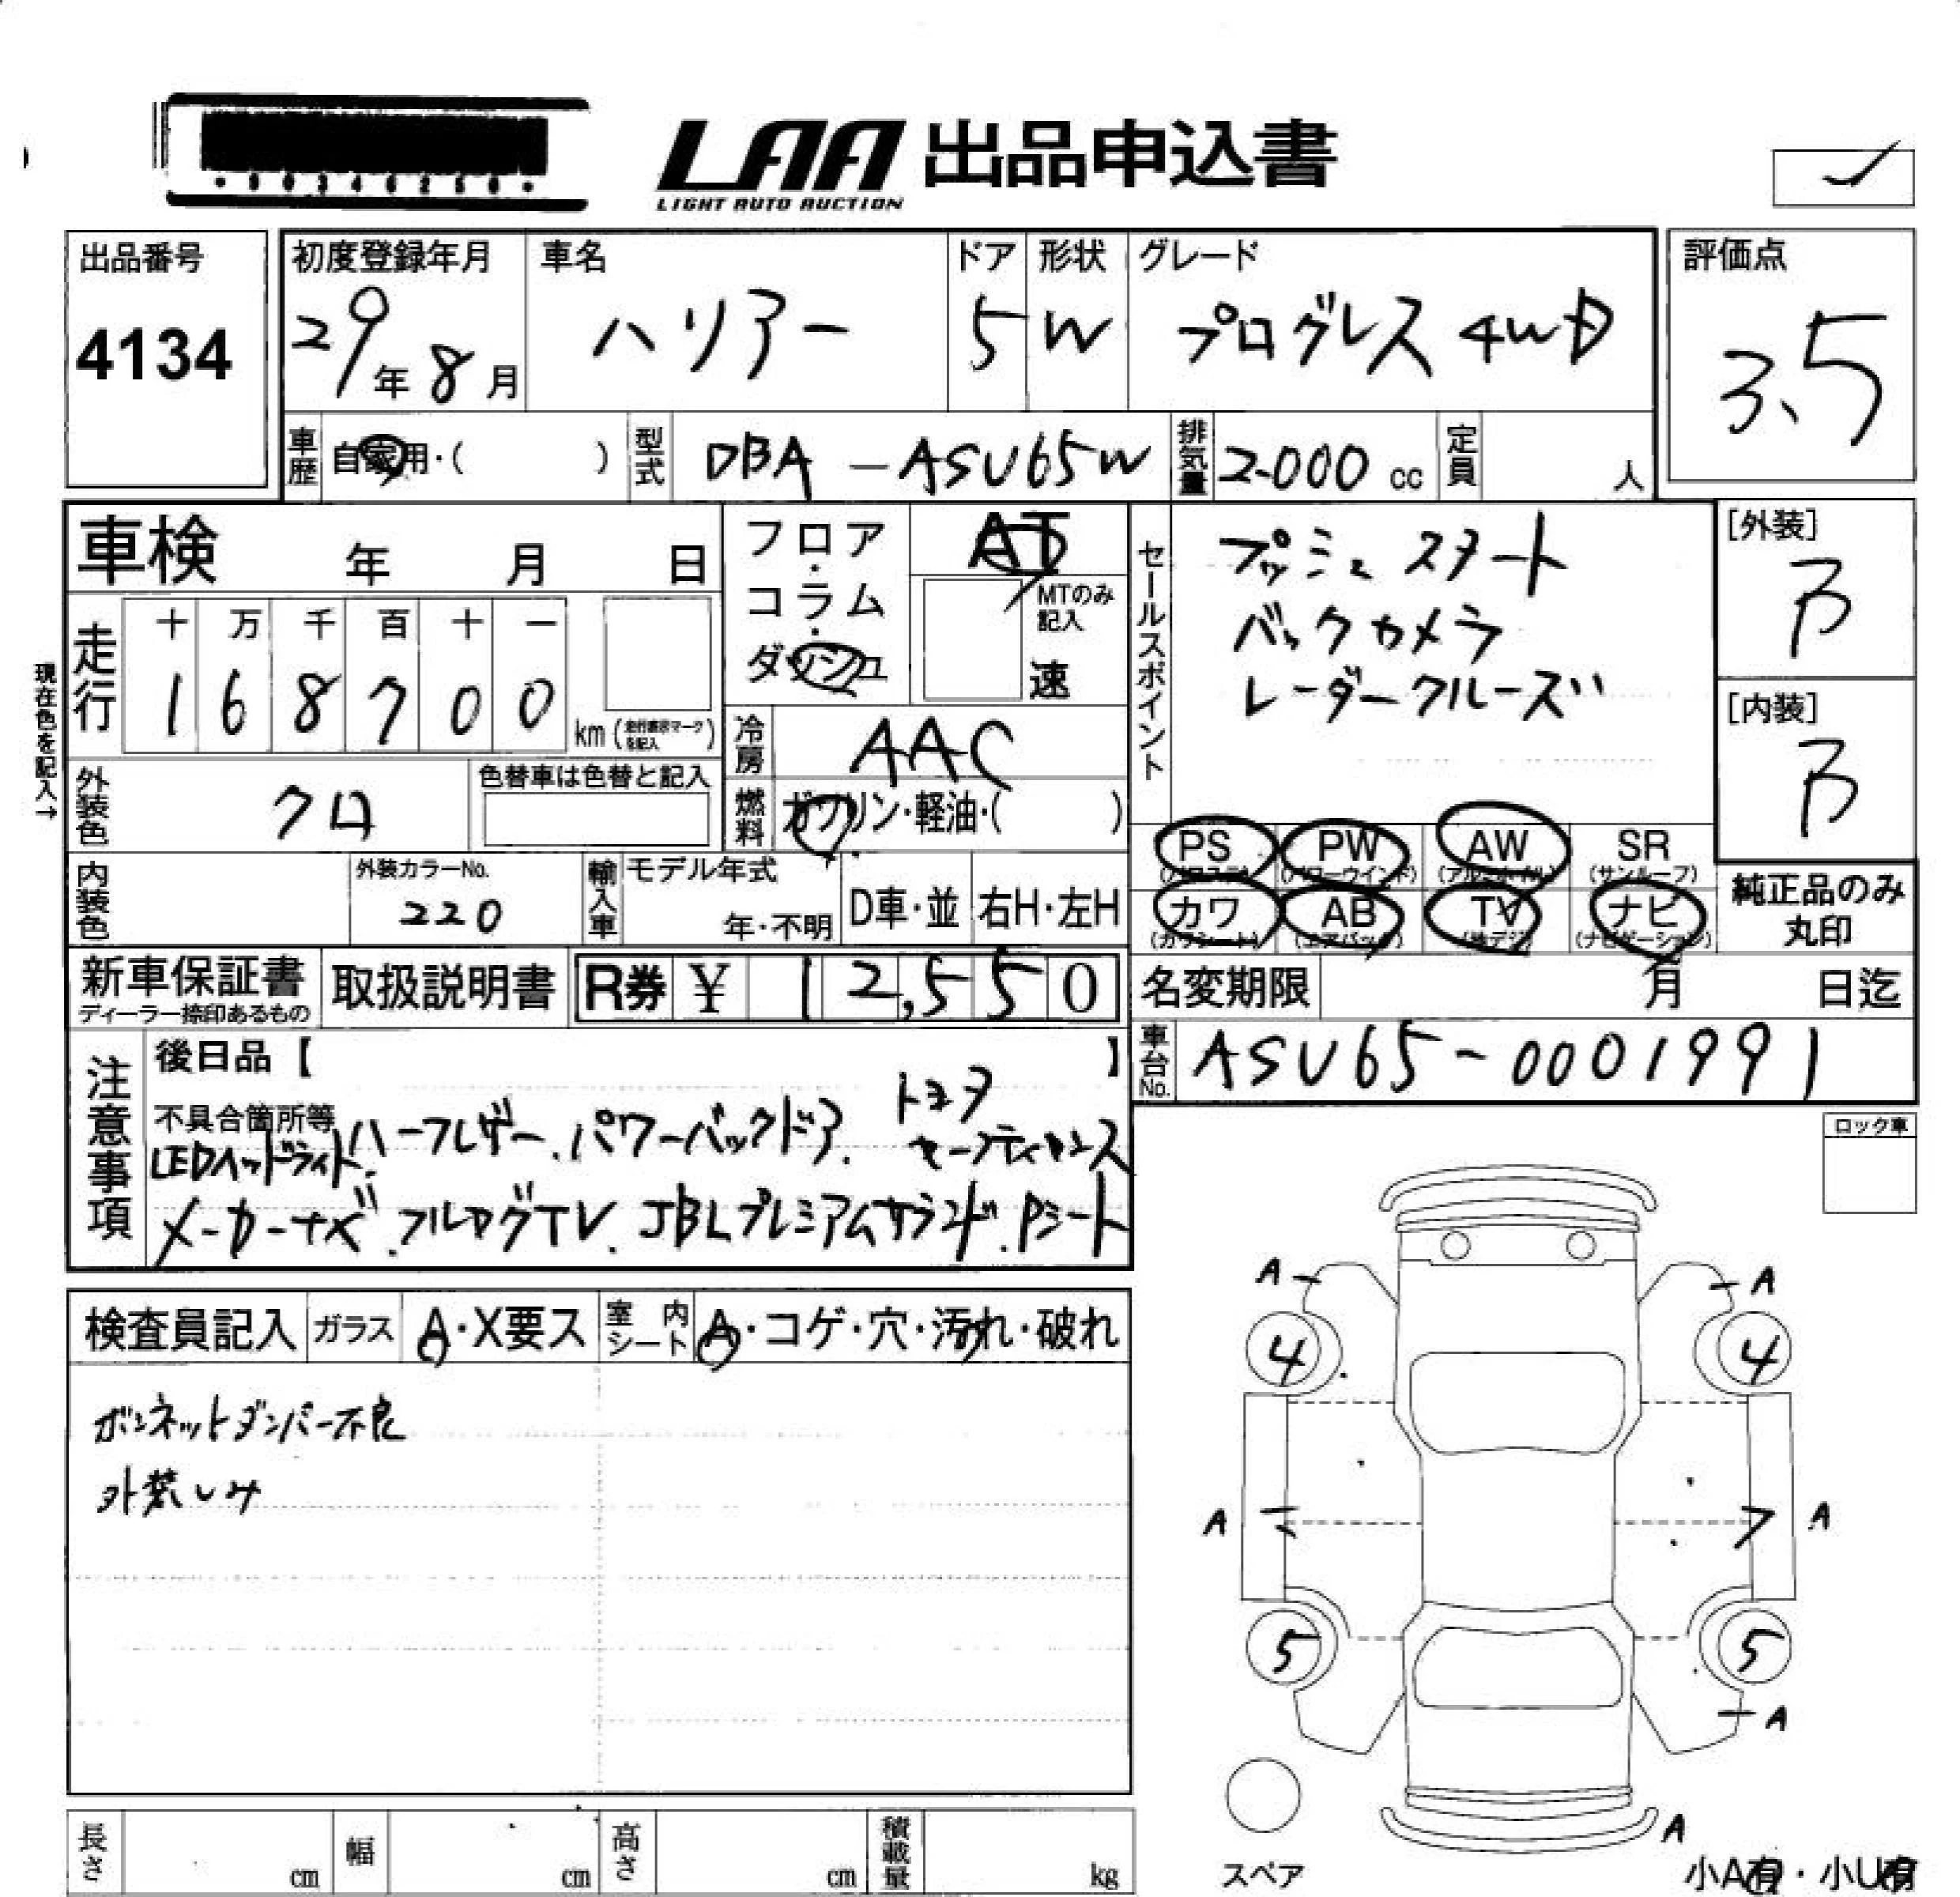 LAA 出品申込書
LIGHT AUTO AUCTION
出品番号
4134
初度登録年月
29年8月
車名
ハリアー
ドア
5
形状
W
グレード
プログレス 4WD
評価点
3.5
車歴 自家用・( )
型式 DBA-ASU65W
排気量 2000 cc
定員 人
車検 年 月 日
フロア・コラム・ダッシュ
AT
MTのみ記入
速
セールスポイント
プッシュスタート
バックカメラ
レーダークルーズ
[外装]
B
[内装]
B
現在色を記入→
走行
十 万 千 百 十 一
1 6 8 7 0 0 km(走行表示マークを記入)
冷房 AAC
外装色 クロ
色替車は色替と記入
燃料 ガソリン・軽油・( )
PS (パワステ)
PW (パワーウインド)
AW (アルミホイル)
SR (サンルーフ)
カワ (カワシート)
AB (エアバック)
TV (地デジ)
ナビ (ナビゲーション)
純正品のみ丸印
内装色
外装カラーNo.
220
輸入車
モデル年式
年・不明
D車・並
右H・左H
新車保証書
ディーラー捺印あるもの
取扱説明書
R券 ¥ 12,550
名変期限 月 日迄
車台No. ASU65-0001991
注意事項
後日品【 】
不具合箇所等
LEDヘッドライト.ハーフレザー.パワーバックドア.トヨタセーフティセンス
メーカーナビ.フルセグTV.JBLプレミアムサウンド.Pシート
ロック車
検査員記入
ガラス A・X要ス
室内シート A・コゲ・穴・汚れ・破れ
ボンネットダンパー不良
外装しみ
A A
4 4
A A
5 5
A
A
スペア
小A有・小U有
長さ cm
幅 cm
高さ cm
積載量 kg